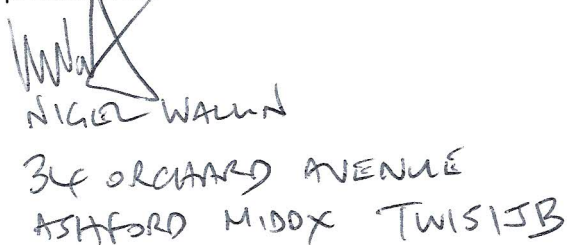 NIGEL WALLIN
34 ORCHARD AVENUE
ASHFORD MIDDX TW151JB